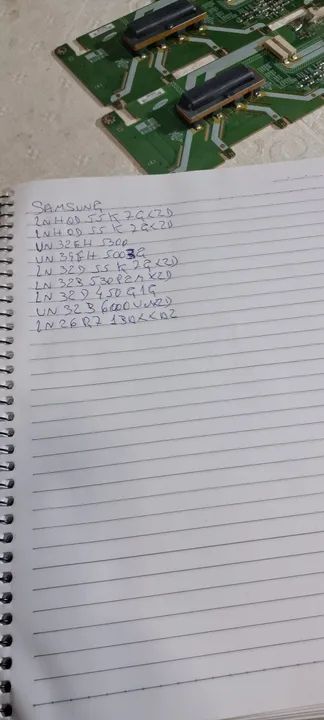 SAMSUNG
LNHOD 55K7G<2D
LNHOD 55K7G<2D
UN32EH 5300
UN39EH 5003G
LN 32D 55K7G<2D
LN 32B 530P2MX2D
LN 32D 450G1G
UN 32B 6000VMX2D
LN26R7